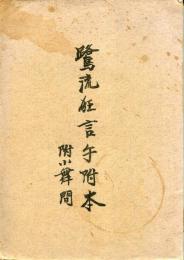 鷺流狂言午附本
附小舞間